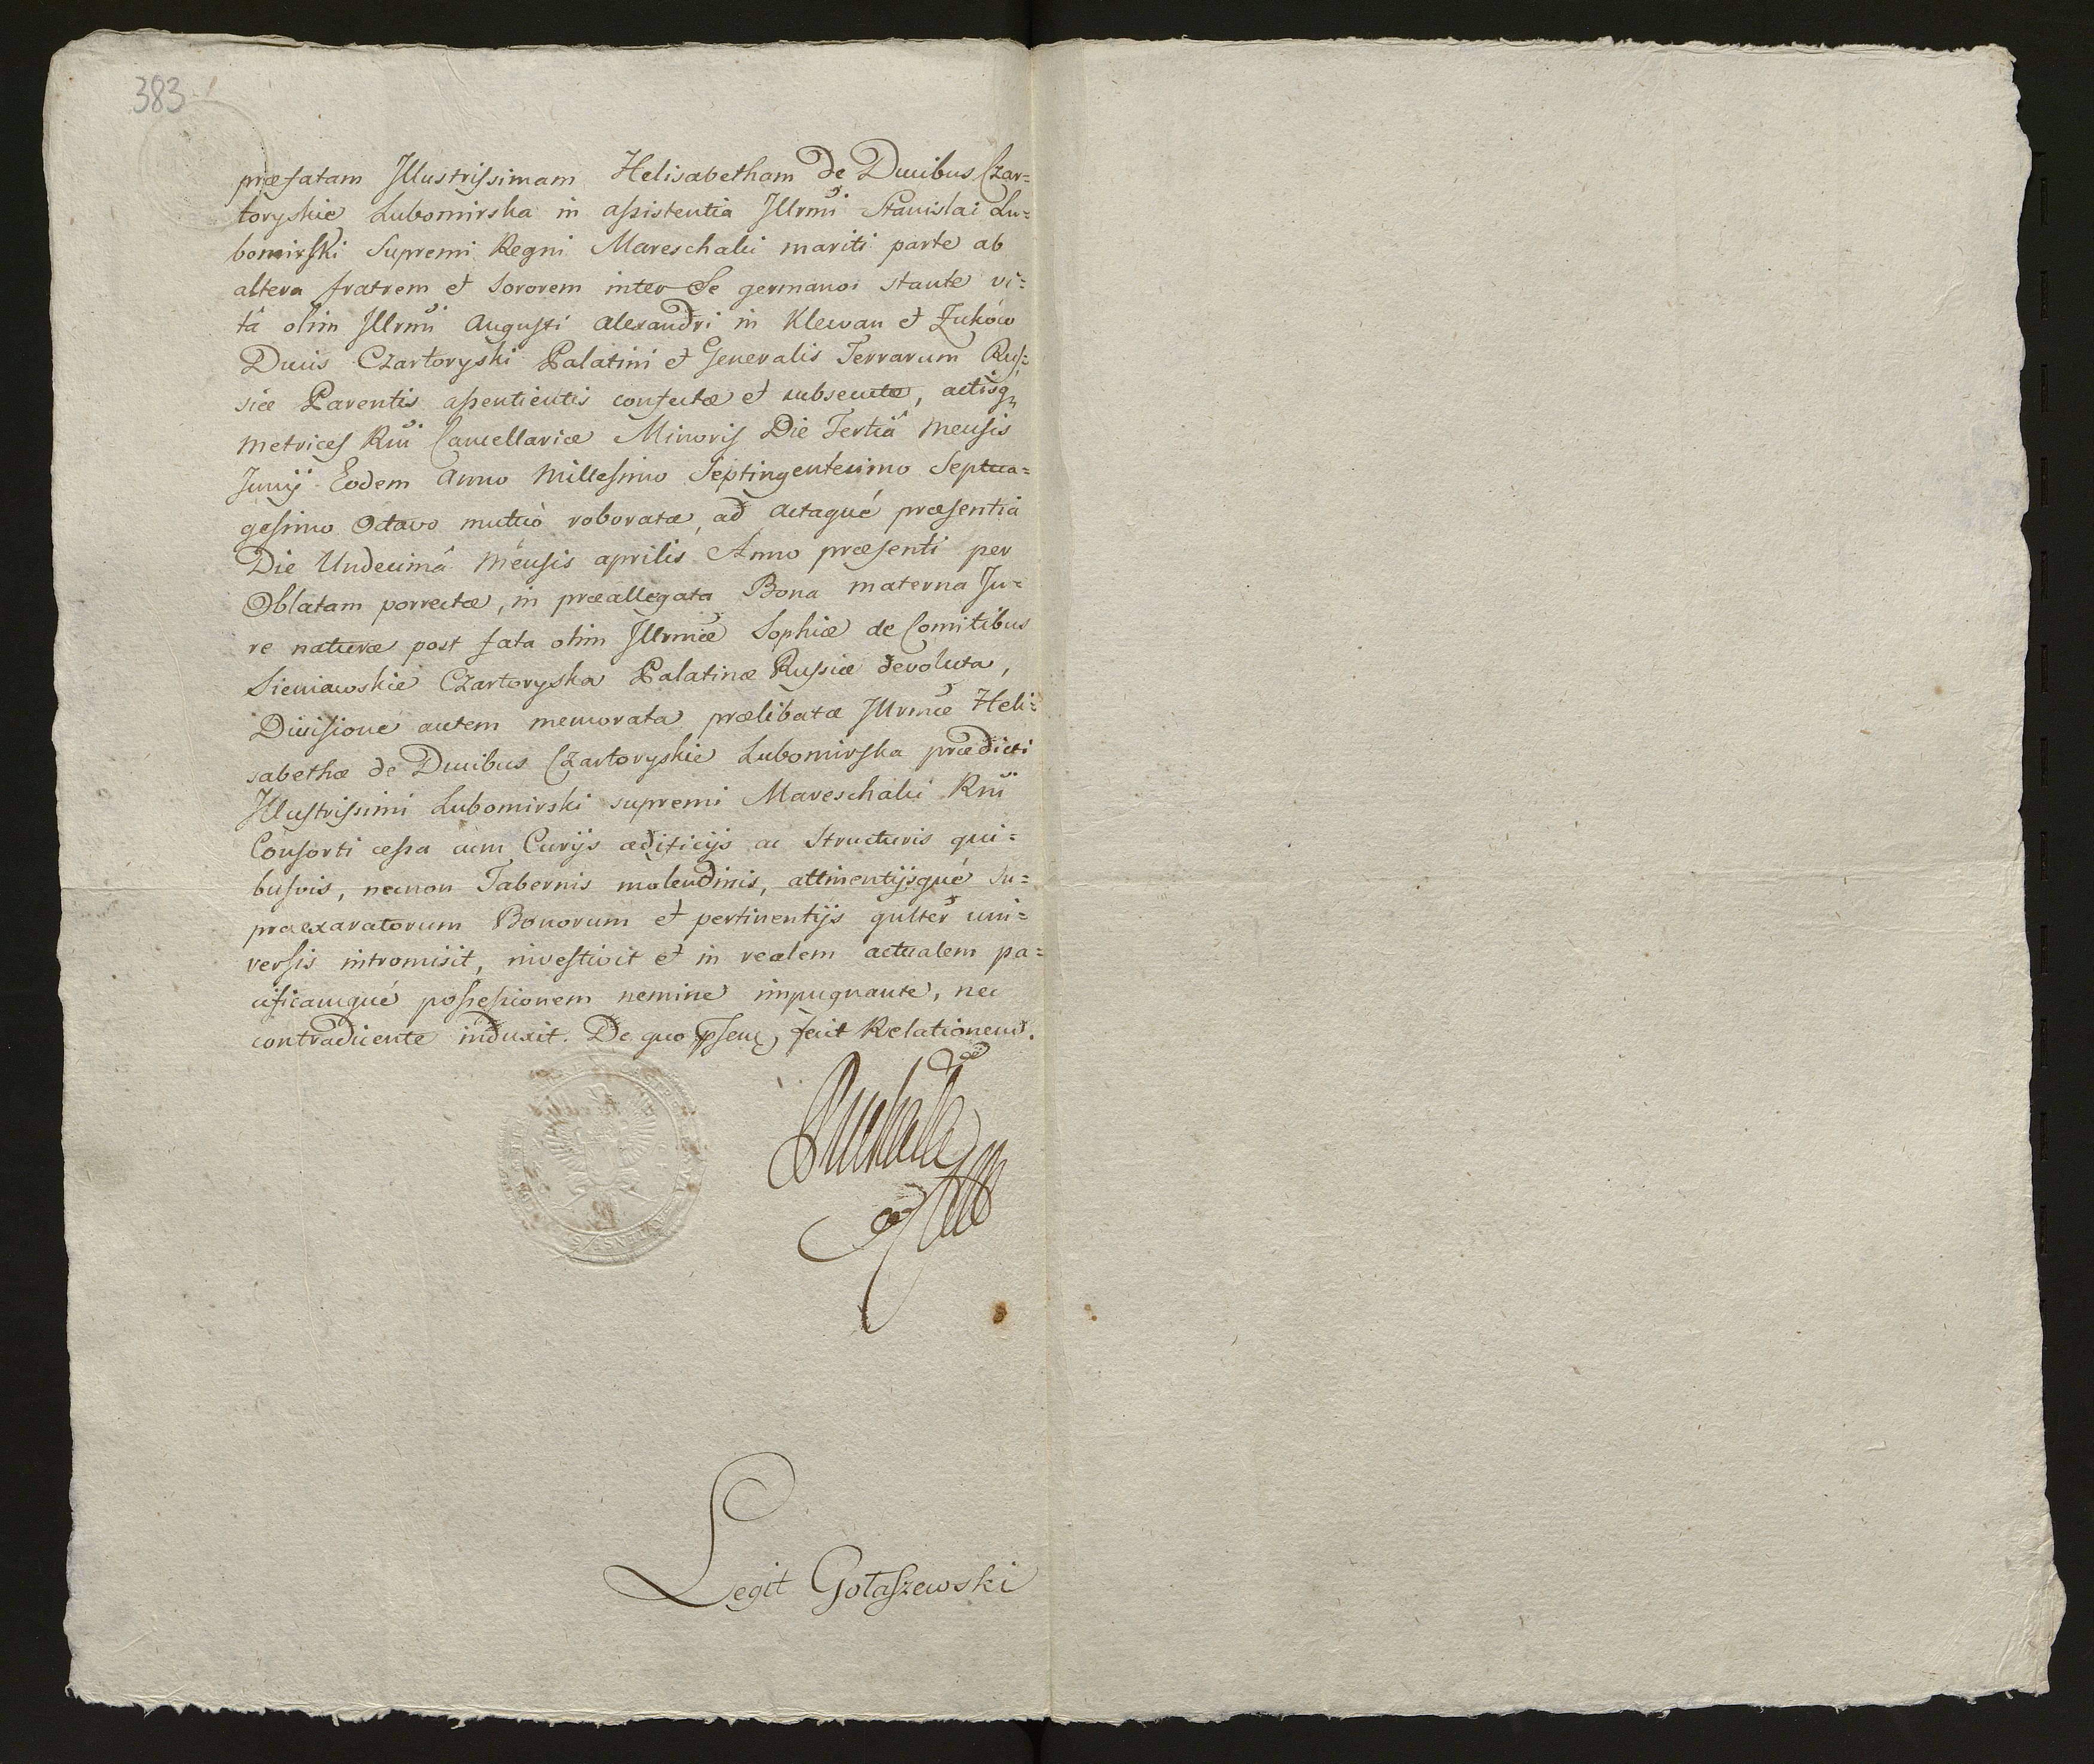 383
præfatam Illustrissimam Helisabetham de Ducibus Czar=
toryskie Lubomirska in assistentia Illrmi Stanislai Lu=
bomirski Supremi Regni Mareschalci mariti parte ab
altera fratrem et sororem inter se germanos stante vi=
tâ olim Illrmi Augusti Alexandri in Klewan et Zuków
Ducis Czartoryski Palatini et Generalis Terrarum Rus=
siæ Parentis assentientis confectæ et subsecutæ, actisq
Metrices Rni Cancellariæ Minoris Die Tertiâ Mensis
Junij Eodem Anno Millesimo Septingentesimo Septua=
gesimo Octavo mutuò roboratæ, ad Actaqué præsentia
Die Undecimâ Mensis Aprilis Anno præsenti per
Oblatam porrectæ, in præallegata Bona materna Ju=
re naturæ post fata olim Illrmæ Sophiæ de Comitibus
Sieniawskie Czartoryska Palatinæ Russiæ devoluta,
Divisione autem memorata prælibatæ Illrmæ Heli=
sabethæ de Ducibus Czartoryskie Lubomirska prædicti
Illustrissimi Lubomirski supremi Mareschalci Rni
Consorti cessa cum Curijs ædificijs ac Structuris qui=
busvis, necnon Tabernis molendinis, attinentijsqué su=
praexaratorum Bonorum et pertinentijs qulter uni=
versis intromisit, investivit et in realem actualem pa=
cificamqué possessionem nemine impugnante, nec
contradicente induxit. De quo pseus fecit Relationem.
Legit Gołaszewski